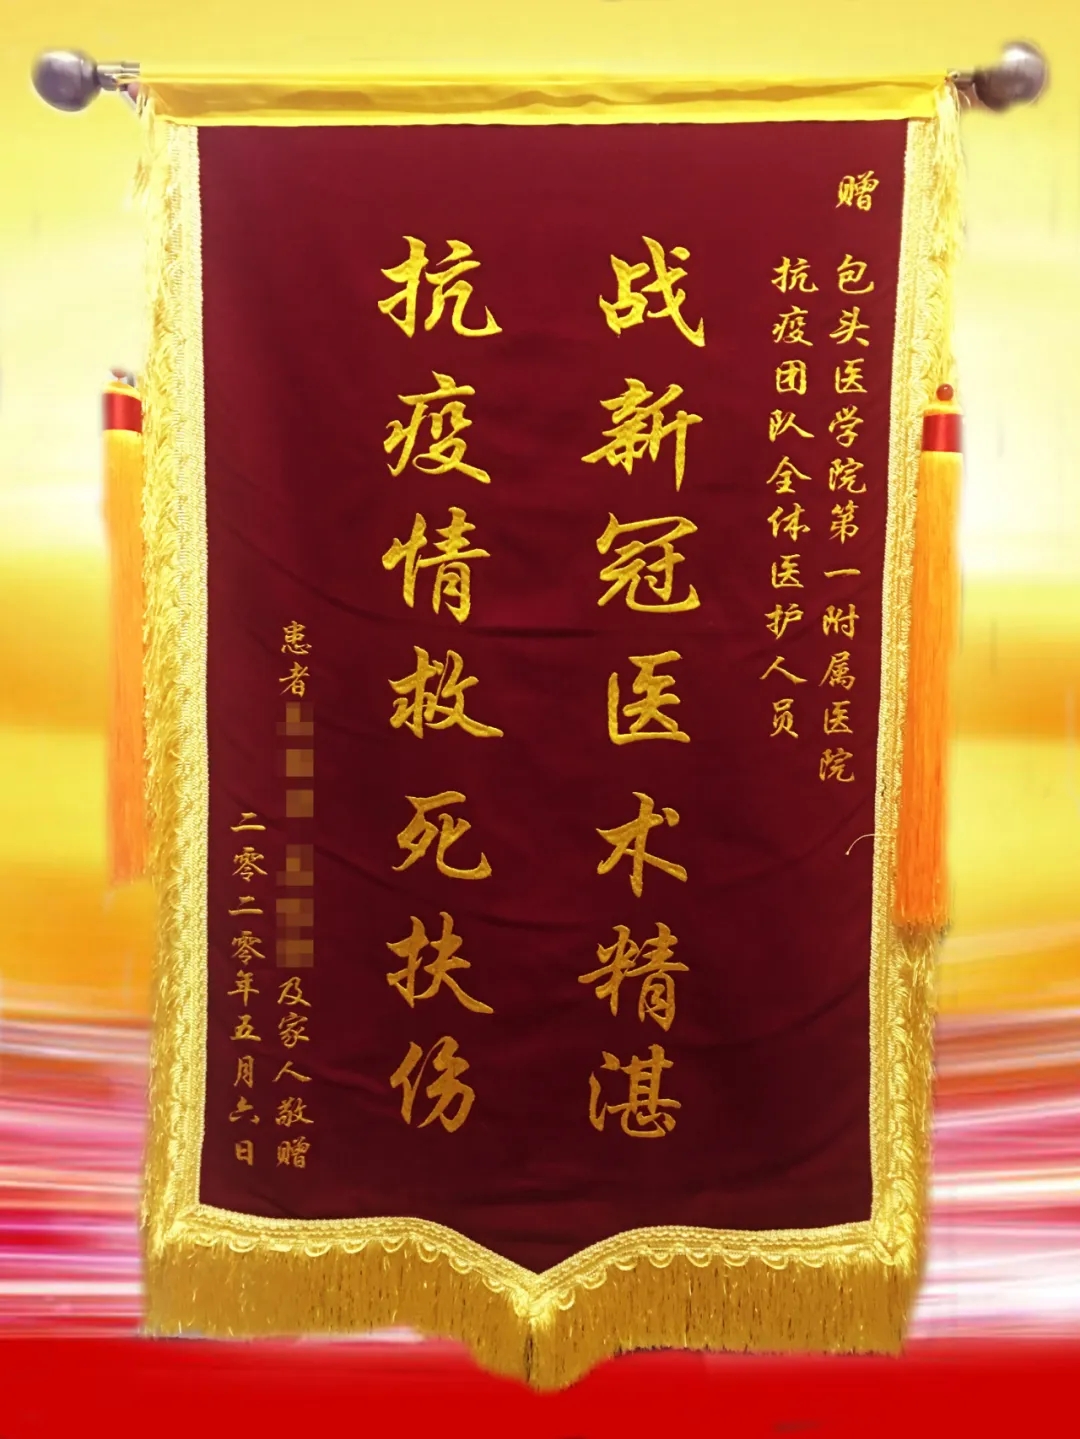 赠 包头医学院第一附属医院
抗疫团队全体医护人员
战新冠医术精湛
抗疫情救死扶伤
患者 及家人敬赠
二零二零年五月六日